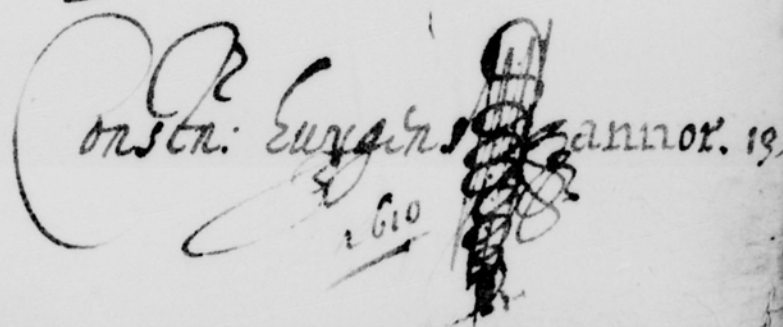 Constn: Huygens annor. 13
1610